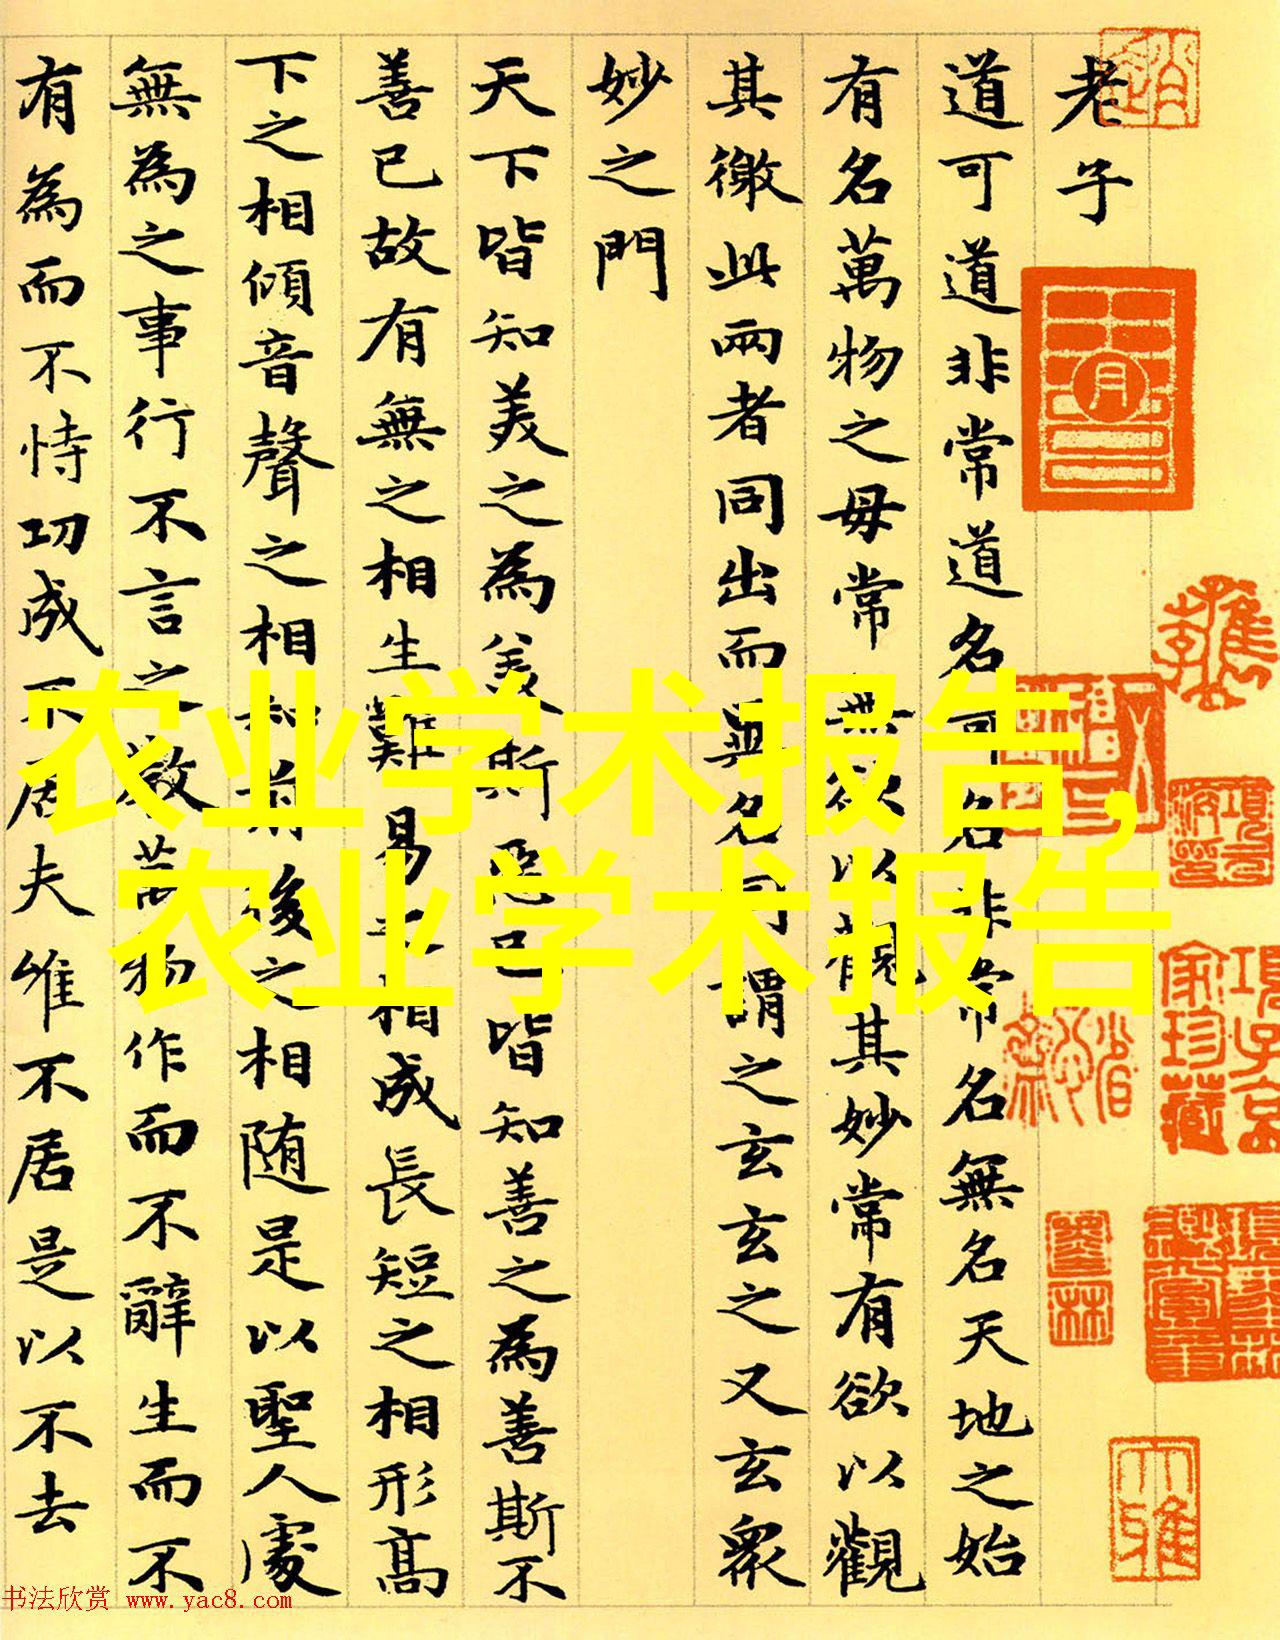 老子
道可道非常道名可名非常名無名天地之始
有名萬物之母常無欲以觀其妙常有欲以觀
其徼此兩者同出而異名同謂之玄玄之又玄衆
妙之門
天下皆知美之為美斯惡已皆知善之為善斯不
善已故有無之相生難易之相成長短之相形高
下之相傾音聲之相和前後之相随是以聖人處
無為之事行不言之教萬物作而不辭生而不
有為而不恃功成不居夫唯不居是以不去
农业学术报告,
农业学术报告
項子京家珍藏
书法欣赏 www.yac8.com